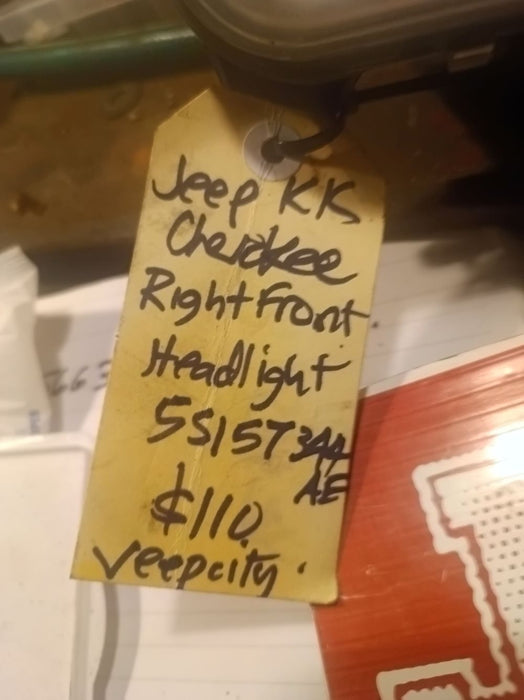 Jeep KK
Cherokee
Right Front
Headlight
55157344
AE
$110
Veepcity.